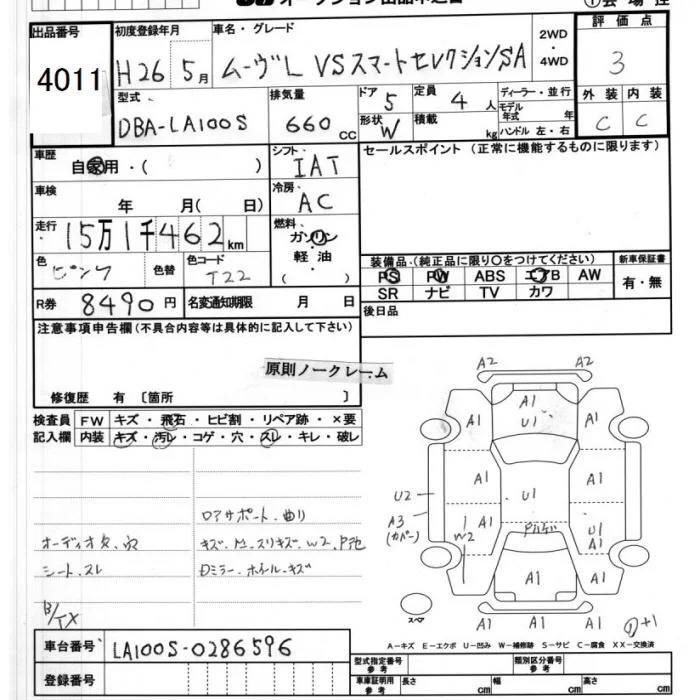 出品番号
4011
初度登録年月
H26 5月
車名・グレード
ムーヴL VSスマートセレクションSA
2WD
・
4WD
評価点
3
外装 内装
C C
型式
DBA-LA100S
排気量
660 cc
ドア 5
形状 W
定員 4 人
積載 kg
ディーラー・並行
モデル年式 年
ハンドル 左・右
車歴
自家用・( )
シフト
IAT
冷房
AC
セールスポイント(正常に機能するものに限ります)
車検
年 月( 日)
走行
15万1千462km
燃料
ガソリン
軽油
( )
色
ピンク
色替
色コード
T22
R券
8490円
名変通知期限 月 日
装備品(純正品に限り○をつけてください)
新車保証書
PS PW ABS エアB AW
SR ナビ TV カワ
有・無
後日品
注意事項申告欄(不具合内容等は具体的に記入して下さい)
原則ノークレーム
修復歴 有〔箇所 〕
検査員
記入欄
FW キズ・飛石・ヒビ割・リペア跡・×要
内装 キズ・汚レ・コゲ・穴・スレ・キレ・破レ
ロアサポート.曲り
オーディオ欠.穴
キズ.M.スリキズ.W2.P他
シート.スレ
Dミラー.ホイル.キズ
B/TX
A2 A2
A1
U1
A1 A1
A1 A1
U2
U1
A3
(カバー)
W2
A1
U1
A1
A1 A1
A1 A1 A1
スペア
①+1
A-キズ E-エクボ U-凹み W-補修跡 S-サビ C-腐食 XX-交換済
車台番号
LA100S-0286596
登録番号
型式指定番号
参考
類別区分番号
参考
車庫証明用
参考
長さ cm 幅 cm 高さ cm